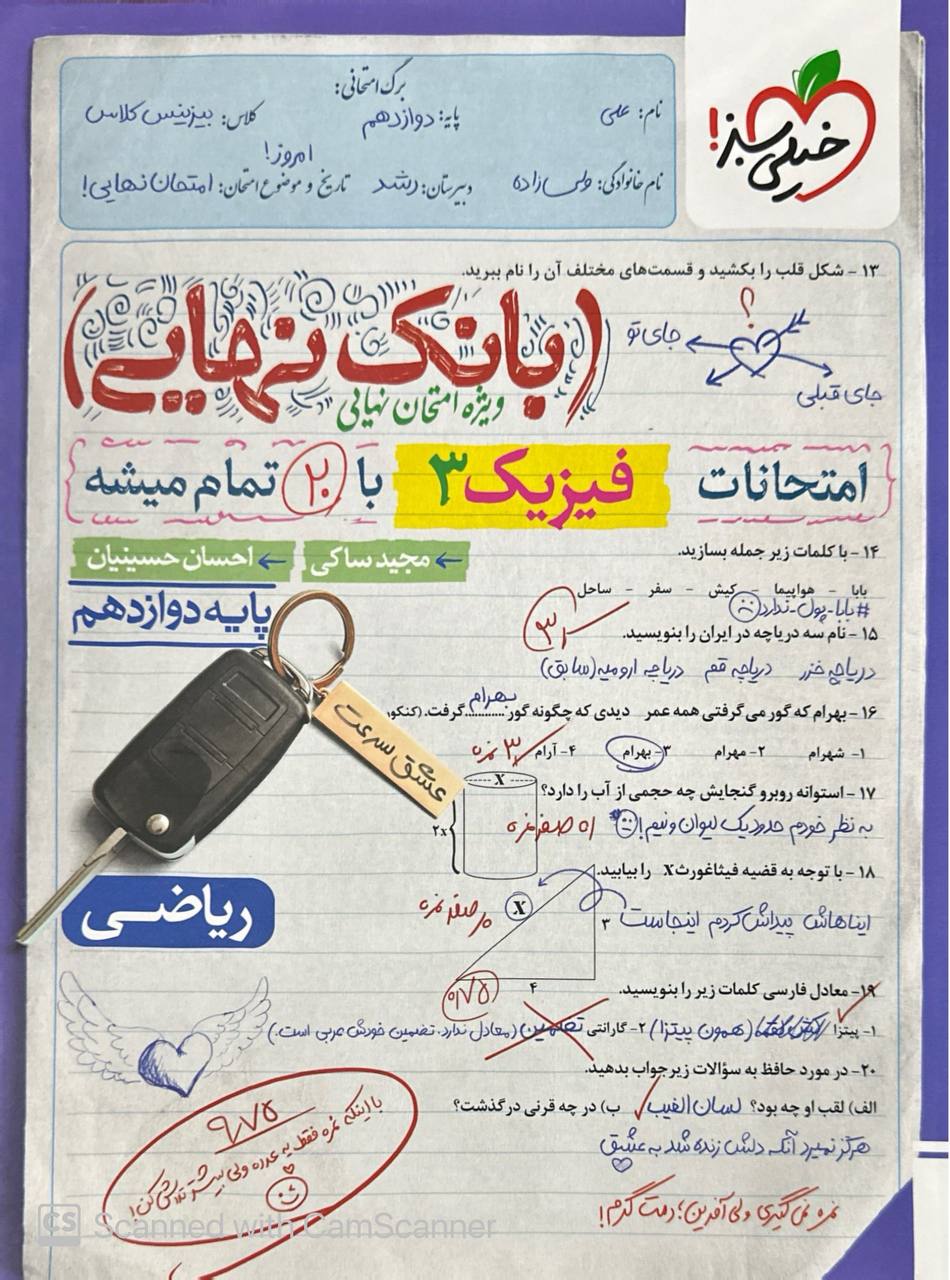 خیلی سبز!
برگ امتحانی:
نام: علی
پایه: دوازدهم
کلاس: بیزینس کلاس
نام خانوادگی: ولی زاده
دبیرستان: رشد
تاریخ و موضوع امتحان: امروز! امتحان نهایی!
۱۳ - شکل قلب را بکشید و قسمت‌های مختلف آن را نام ببرید.
؟
جای تو
جای قبلی
(بانک نهایی)
ویژه امتحان نهایی
امتحانات فیزیک ۳ با ۲۰ تمام میشه
مجید ساکی
احسان حسینیان
پایه دوازدهم
۱۴ - با کلمات زیر جمله بسازید.
بابا - هواپیما - کیش - سفر - ساحل
#بابا-پول-ندارد
۱۵ - نام سه دریاچه در ایران را بنویسید.
دریاچه خزر دریاچه قم دریاچه ارومیه (سابق)
۱۶ - بهرام که گور می گرفتی همه عمر دیدی که چگونه گور بهرام گرفت. (کنکور
۱- شهرام ۲- مهرام ۳- بهرام ۴- آرام
۳ نمره
عشق سرعت
۱۷ - استوانه روبرو گنجایش چه حجمی از آب را دارد؟
X
۲x
به نظر خودم حدود یک لیوان و نیم!
صفر نمره
۱۸ - با توجه به قضیه فیثاغورث X را بیابید.
X
ایناهاش پیداش کردم اینجاست
۳
۴
صفر نمره
ریاضی
۰/۷۵
۱۹ - معادل فارسی کلمات زیر را بنویسید.
۱- پیتزا (همون پیتزا) ۲- گارانتی تضمین (معادل ندارد. تضمین خودش عربی است.)
۲۰ - در مورد حافظ به سؤالات زیر جواب بدهید.
الف) لقب او چه بود؟ لسان الغیب ب) در چه قرنی درگذشت؟
هرگز نمیرد آنکه دلش زنده شد به عشق
۹/۷۵
با اینکه نمره فقط یه عدده ولی بیشتر تلاش کن!
نمره نمی گیری ولی آفرین؛ دمت گرم!
CS Scanned with CamScanner